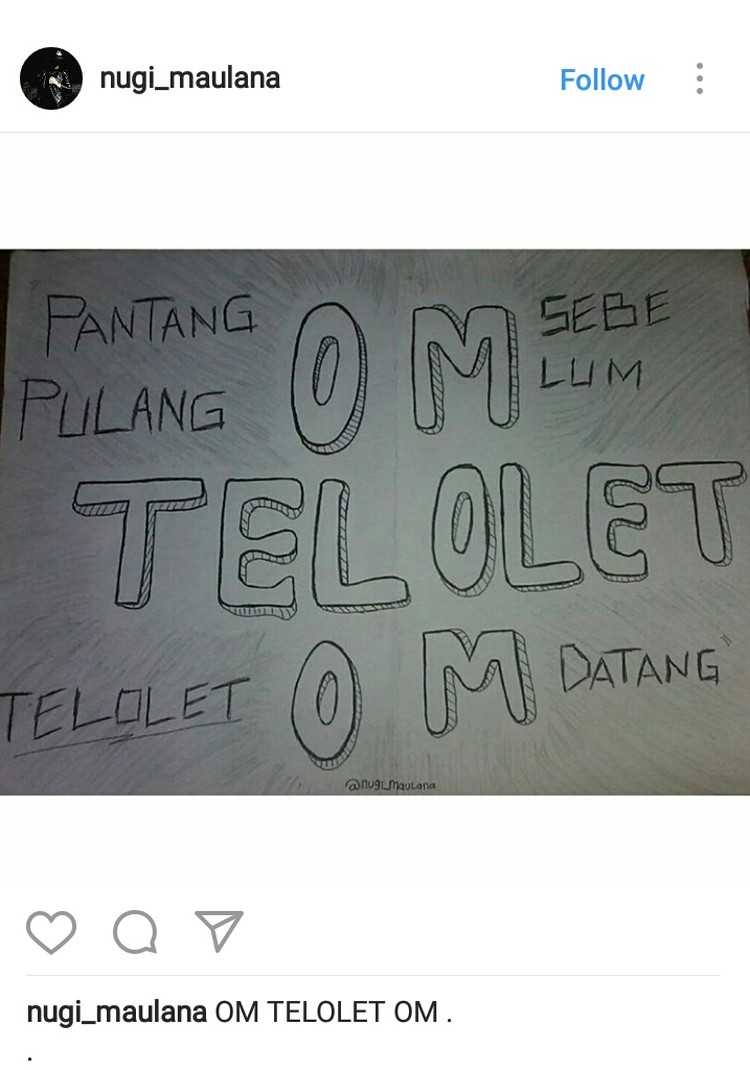 nugi_maulana
Follow
PANTANG
PULANG
OM
SEBE
LUM
TELOLET
TELOLET
OM
DATANG"
@nugi_maulana
nugi_maulana OM TELOLET OM .
.